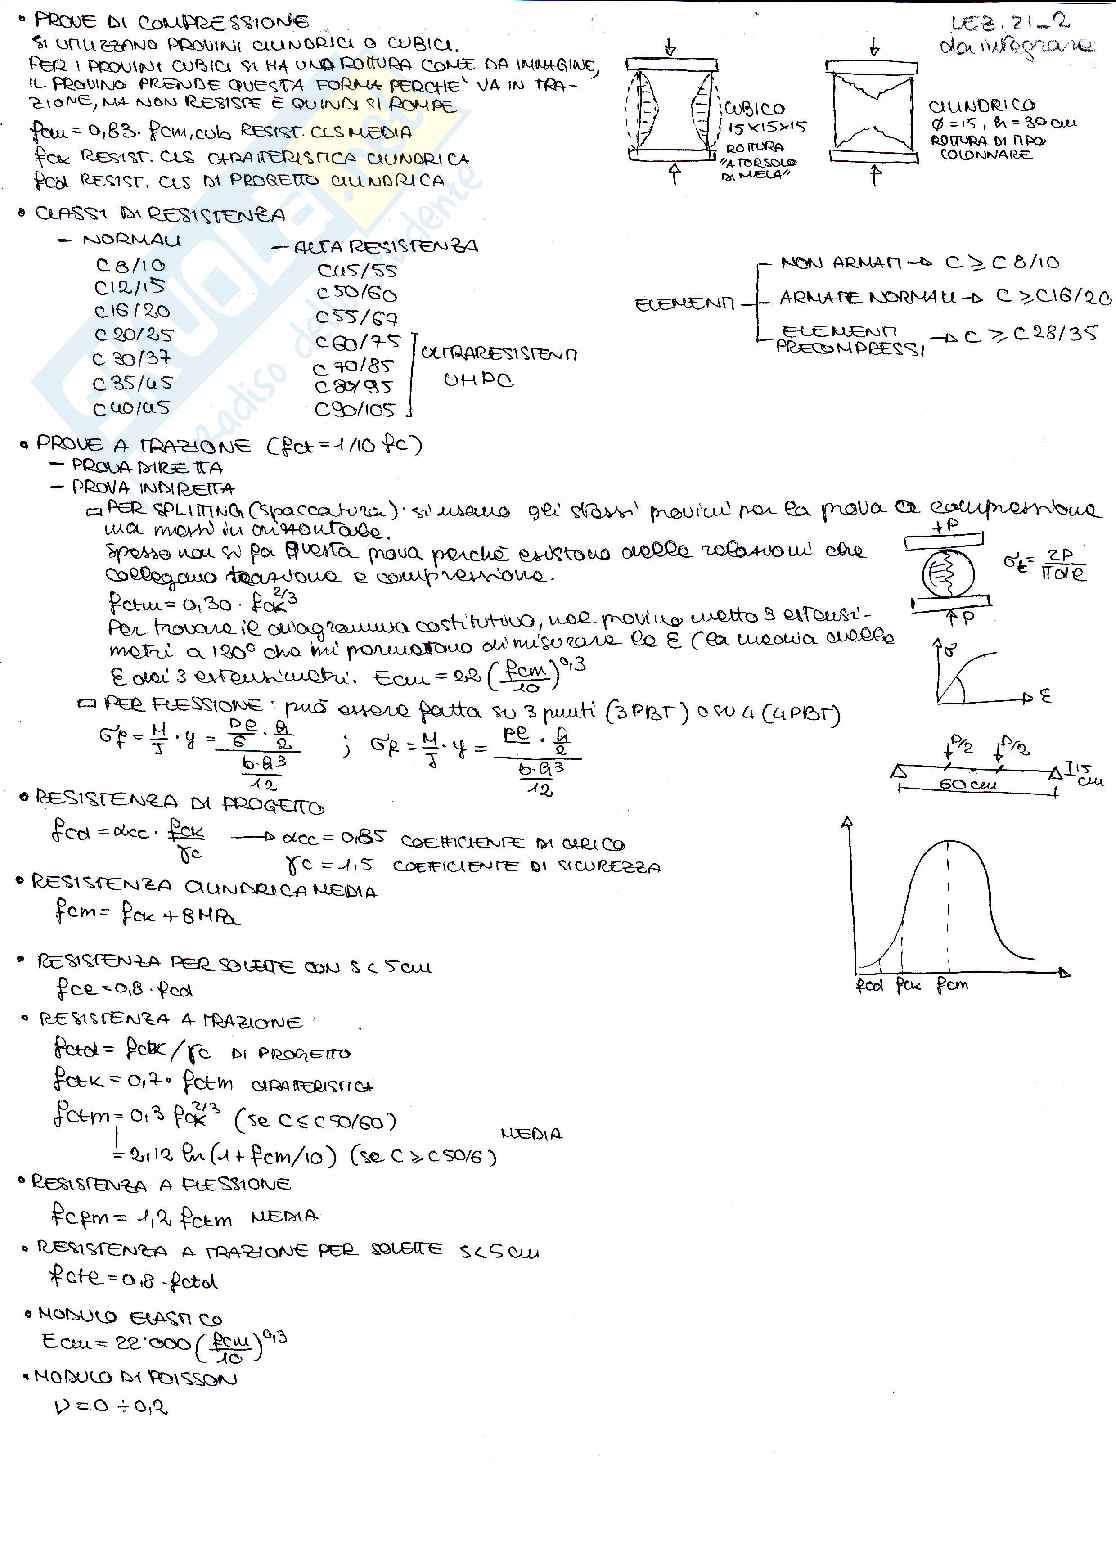 LEZ. 21_2
da integrare
• PROVE DI COMPRESSIONE
SI UTILIZZANO PROVINI CILINDRICI O CUBICI.
PER I PROVINI CUBICI SI HA UNA ROTTURA COME DA IMMAGINE,
IL PROVINO PRENDE QUESTA FORMA PERCHE' VA IN TRA-
ZIONE, MA NON RESISTE E QUINDI SI ROMPE
fcm = 0,83 · fcm,cub RESIST. CLS MEDIA
fck RESIST. CLS CARATTERISTICA CILINDRICA
fcd RESIST. CLS DI PROGETTO CILINDRICA
CUBICO
15x15x15
ROTTURA
"A TORSOLO
DI MELA"
CILINDRICO
Ø=15, h=30 cm
ROTTURA DI TIPO
COLONNARE
• CLASSI DI RESISTENZA
– NORMALI
C8/10
C12/15
C16/20
C20/25
C30/37
C35/45
C40/45
– ALTA RESISTENZA
C45/55
C50/60
C55/67
C60/75
C70/85
C80/95
C90/105
ULTRARESISTENTI
UHPC
ELEMENTI
NON ARMATI → C ≥ C8/10
ARMATE NORMALI → C ≥ C16/20
ELEMENTI
PRECOMPRESSI → C ≥ C28/35
• PROVE A TRAZIONE (fct = 1/10 fc)
– PROVA DIRETTA
– PROVA INDIRETTA
□ PER SPLITTING (spaccatura): si usano gli stessi provini per la prova a compressione
ma messi in orizzontale.
Spesso non si fa questa prova perchè esistono delle relazioni che
collegano trazione e compressione.
fctm = 0,30 · fck^2/3
Per trovare il diagramma costitutivo, nel provino metto 3 estensi-
metri a 120° che mi permettono di misurare la ε (la media delle
ε dei 3 estensimetri. Ecm = 22 (fcm/10)^0,3
P
σt = 2P/πdl
P
σ
ε
□ PER FLESSIONE: può essere fatta su 3 punti (3PBT) o su 4 (4PBT)
σf = M/J · y = (Pl/6 · h/2)/(b·h³/12) ; σf = M/J · y = (Pl · h/2)/(b·h³/12)
P/2 P/2
60 cm
15 cm
• RESISTENZA DI PROGETTO
fcd = αcc · fck/γc → αcc = 0,85 COEFFICIENTE DI CARICO
γc = 1,5 COEFFICIENTE DI SICUREZZA
• RESISTENZA CILINDRICA MEDIA
fcm = fck + 8 MPa
fcd fck fcm
• RESISTENZA PER SOLETTE CON S < 5cm
fce = 0,8 · fcd
• RESISTENZA A TRAZIONE
fctd = fctk/γc DI PROGETTO
fctk = 0,7 · fctm CARATTERISTICA
fctm = 0,3 fck^2/3 (se C ≤ C50/60)
MEDIA
= 2,12 ln(1 + fcm/10) (se C > C50/6)
• RESISTENZA A FLESSIONE
fcfm = 1,2 fctm MEDIA
• RESISTENZA A TRAZIONE PER SOLETTE S<5cm
fcte = 0,8 · fctd
• MODULO ELASTICO
Ecm = 22'000 (fcm/10)^0,3
• MODULO DI POISSON
ν = 0 ÷ 0,2